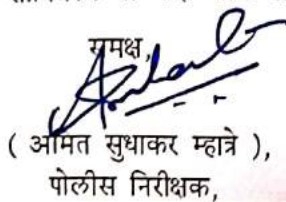 समक्ष,
( अमित सुधाकर म्हात्रे ),
पोलीस निरीक्षक,